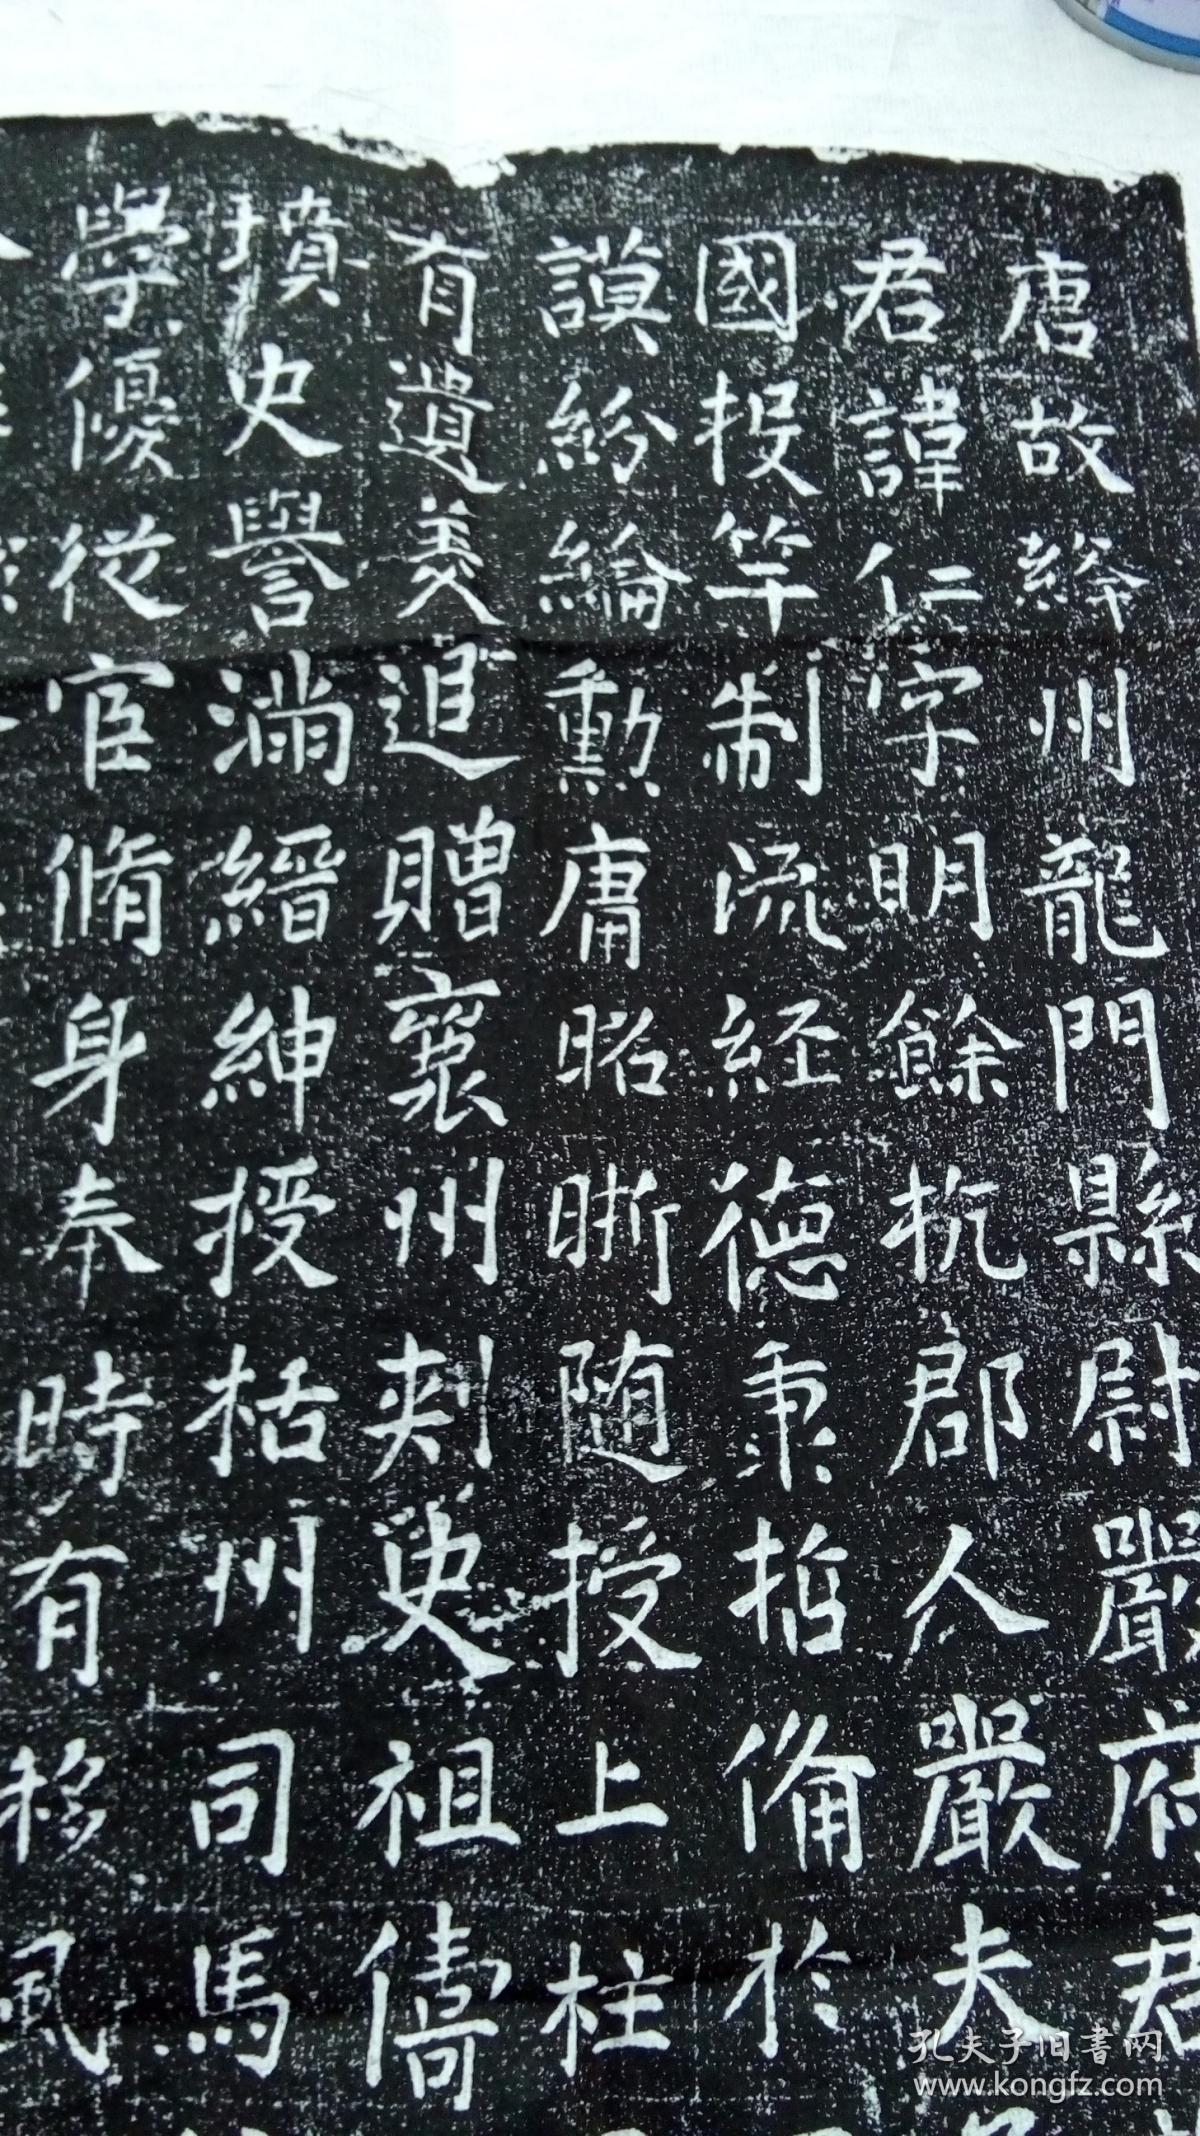 唐故絳州龍門縣尉嚴府君
君諱仁字明餘杭郡人嚴夫
國投竿制流経德秉哲俻於
謨紛綸勳庸昭晰随授上柱
有遺美追贈襄州刺史祖儔
墳史譽滿縉紳授括州司馬
學優從宦脩身奉時有
移風
孔夫子旧书网
www.kongfz.com